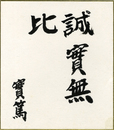 誠實無比
實篤